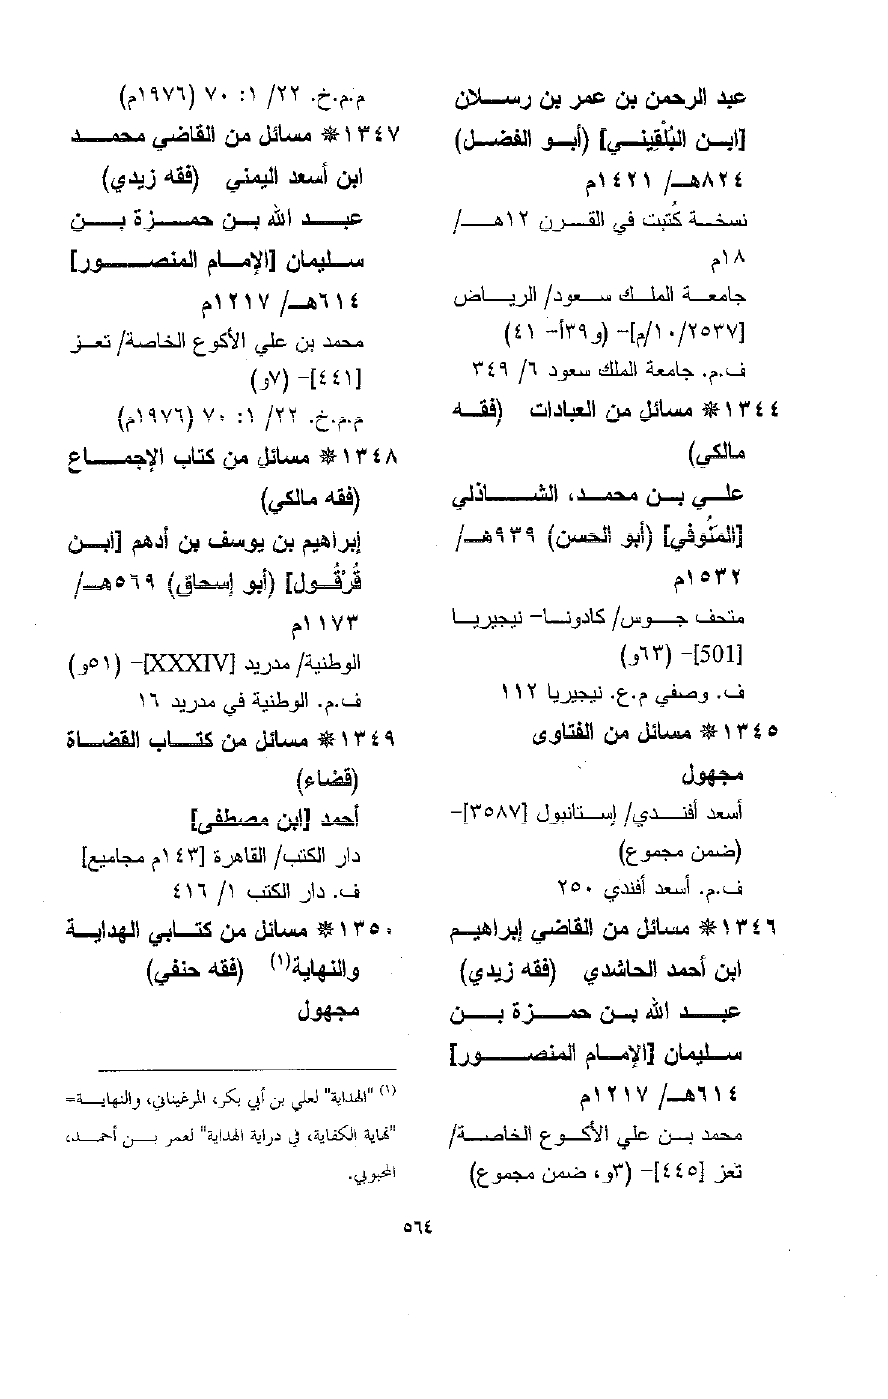 عبد الرحمن بن عمر بن رسلان
[ابن البُلْقِيني] (أبو الفضل)
٨٢٤هـ/ ١٤٢١م
نسخة كُتبت في القرن ١٢هـ/
١٨م
جامعة الملك سعود/ الرياض
[٢٥٣٧/١٠/م]- (و٣٩أ- ٤١)
ف.م. جامعة الملك سعود ٦/ ٣٤٩
١٣٤٤ * مسائل من العبادات (فقه
مالكي)
علي بن محمد، الشاذلي
[المَنُوفي] (أبو الحسن) ٩٣٩هـ/
١٥٣٢م
متحف جوس/ كادونا- نيجيريا
[501]- (٦٣و)
ف. وصفي م.ع. نيجيريا ١١٢
١٣٤٥ * مسائل من الفتاوى
مجهول
أسعد أفندي/ إستانبول [٣٥٨٧]-
(ضمن مجموع)
ف.م. أسعد أفندي ٢٥٠
١٣٤٦ * مسائل من القاضي إبراهيم
ابن أحمد الحاشدي (فقه زيدي)
عبد الله بن حمزة بن
سليمان [الإمام المنصور]
٦١٤هـ/ ١٢١٧م
محمد بن علي الأكوع الخاصة/
تعز [٤٤٥]- (٣و، ضمن مجموع)
م.م.خ. ٢٢/ ١: ٧٠ (١٩٧٦م)
١٣٤٧ * مسائل من القاضي محمد
ابن أسعد اليمني (فقه زيدي)
عبد الله بن حمزة بن
سليمان [الإمام المنصور]
٦١٤هـ/ ١٢١٧م
محمد بن علي الأكوع الخاصة/ تعز
[٤٤١]- (٧و)
م.م.خ. ٢٢/ ١: ٧٠ (١٩٧٦م)
١٣٤٨ * مسائل من كتاب الإجماع
(فقه مالكي)
إبراهيم بن يوسف بن أدهم [ابن
قُرْقُول] (أبو إسحاق) ٥٦٩هـ/
١١٧٣م
الوطنية/ مدريد [XXXIV]- (٥١و)
ف.م. الوطنية في مدريد ١٦
١٣٤٩ * مسائل من كتاب القضاة
(قضاء)
أحمد [ابن مصطفى]
دار الكتب/ القاهرة [١٤٣م مجاميع]
ف. دار الكتب ١/ ٤١٦
١٣٥٠ * مسائل من كتابي الهداية
والنهاية(١) (فقه حنفي)
مجهول
(١) "الهداية" لعلي بن أبي بكر، المرغيناني، والنهاية=
"نهاية الكفاية، في دراية الهداية" لعمر بن أحمد،
المحبوبي.
٥٦٤